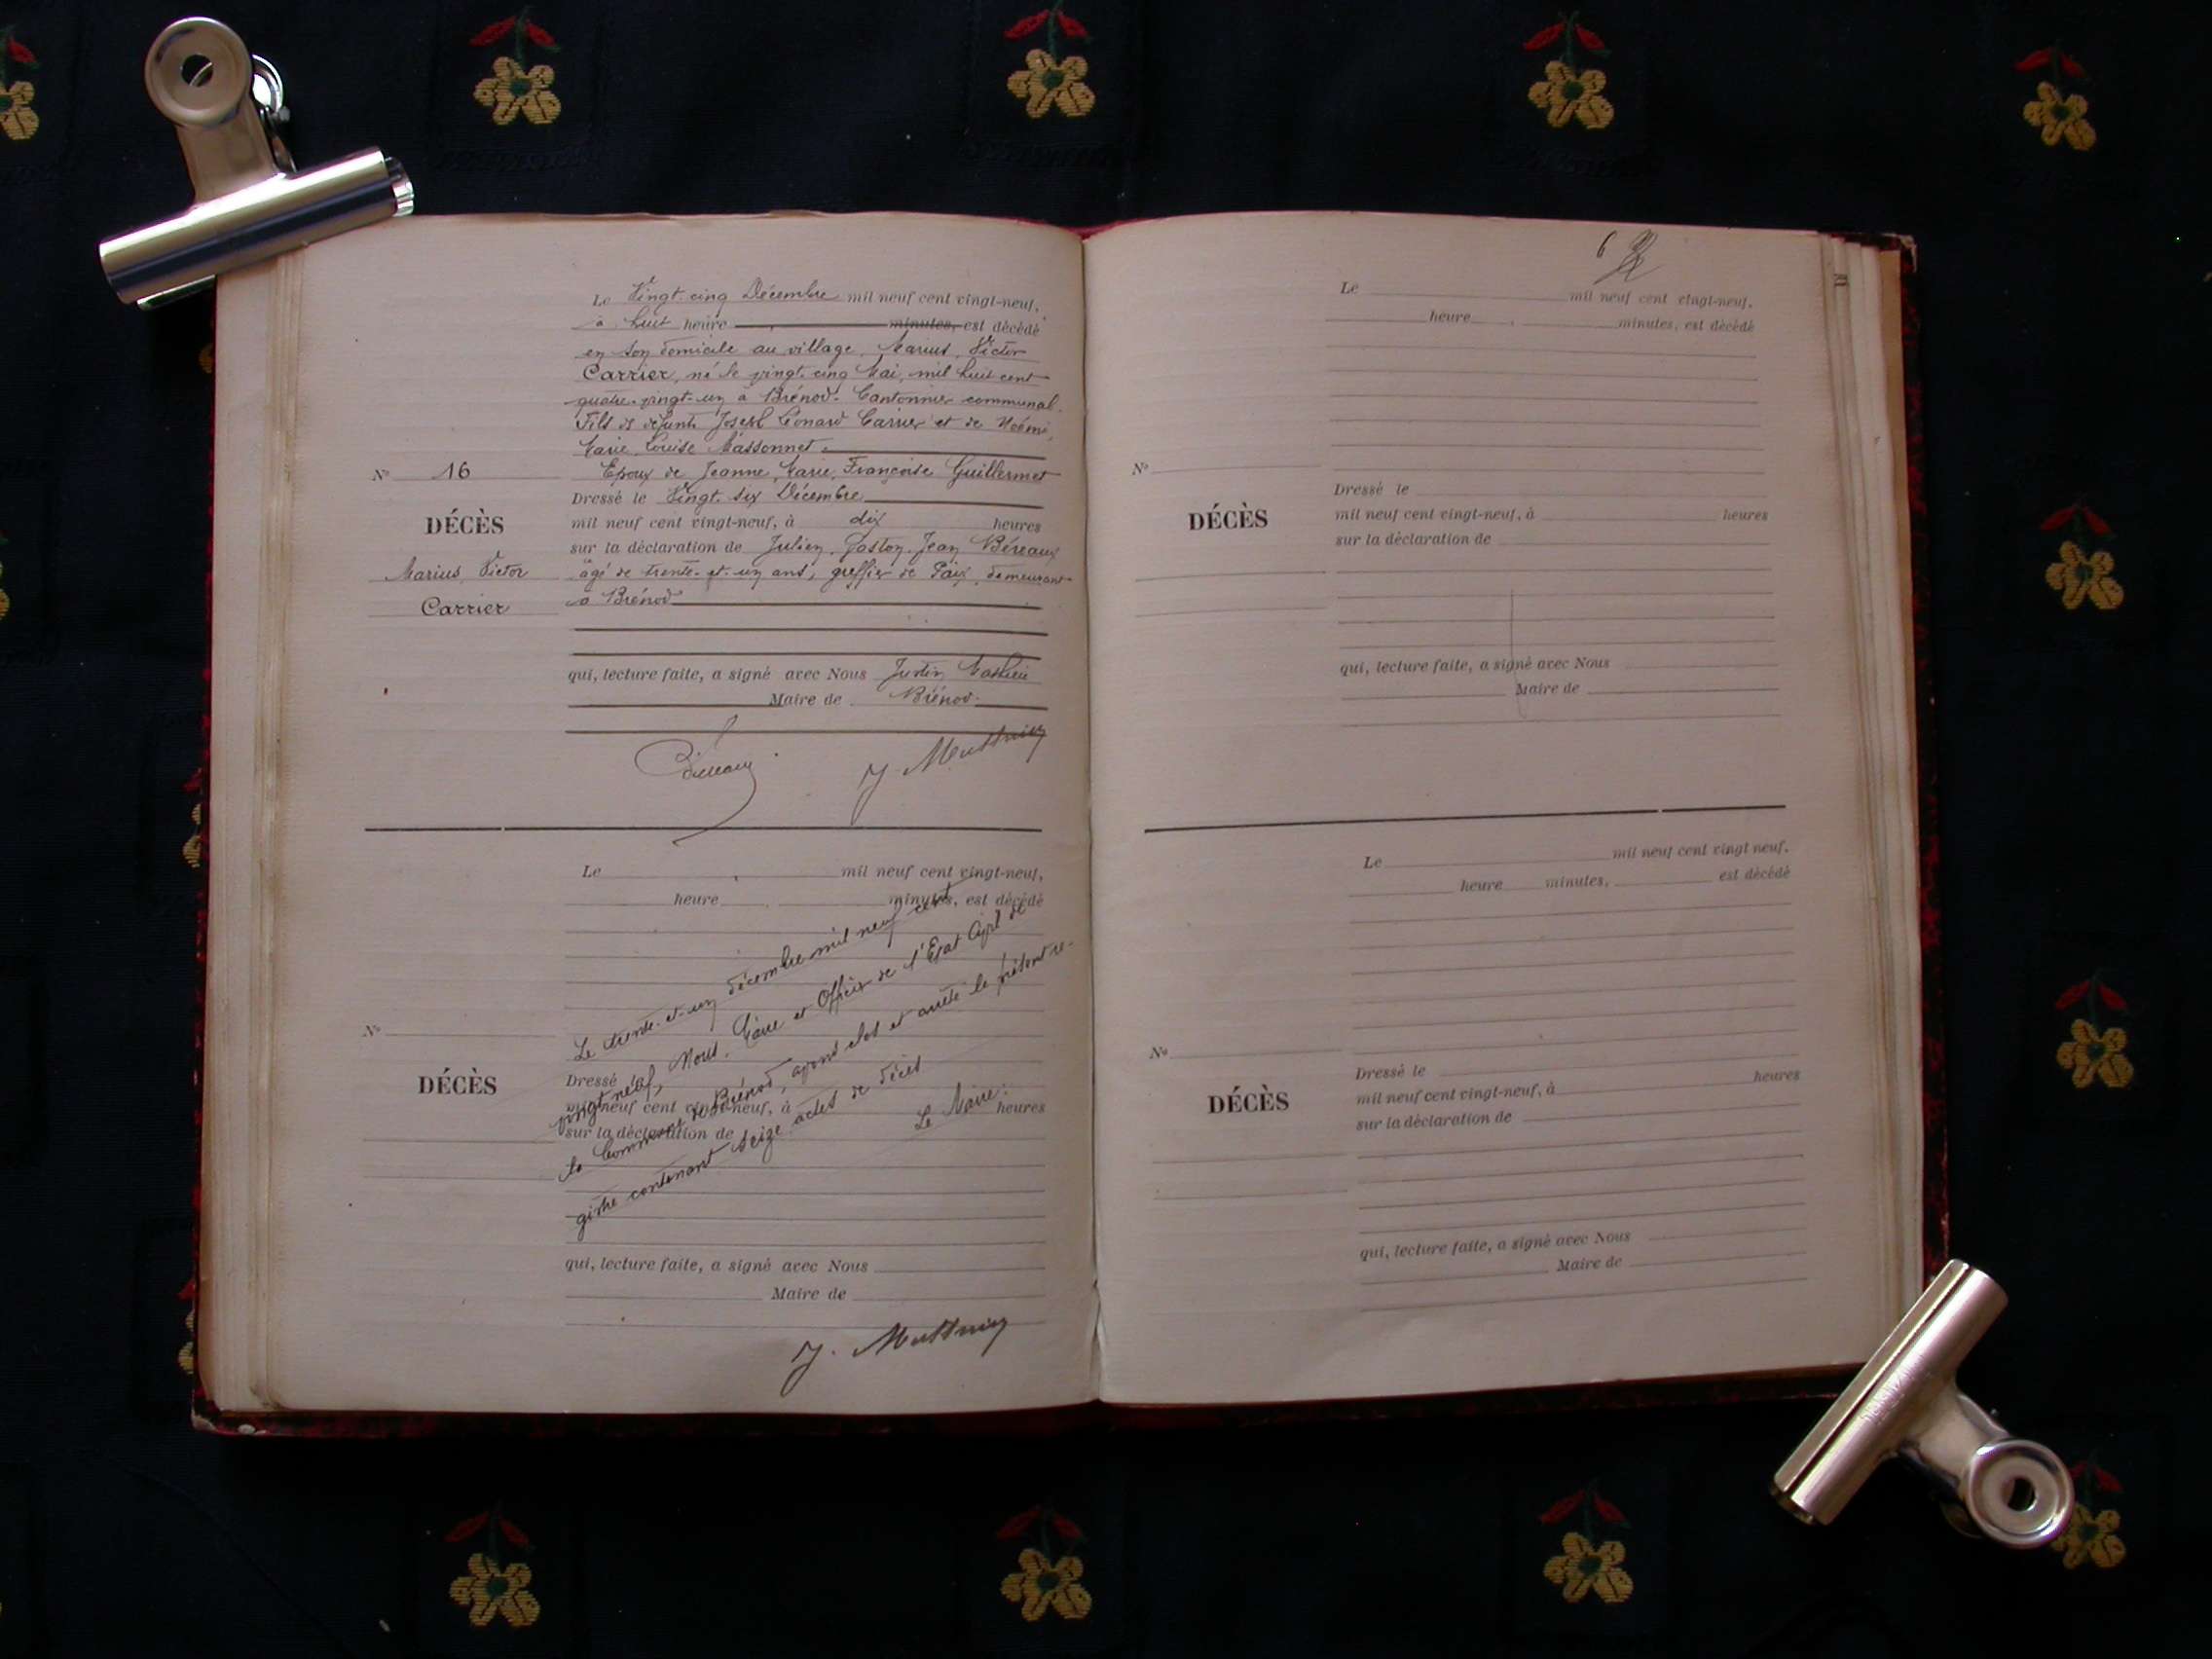 Le Vingt-cinq Décembre mil neuf cent vingt-neuf,
à huit heure minutes, est décédé
en son domicile au village, Marius, Victor
Carrier, né le vingt-cinq Mai, mil huit cent
quatre-vingt-un à Brénod. Cantonnier communal.
Fils de défunts Joseph Léonard Carrier et de Noémi,
Marie, Louise Massonnet
N° 16
Epoux de Jeanne, Marie, Françoise Guillermet
Dressé le Vingt-six Décembre
DÉCÈS
mil neuf cent vingt-neuf, à dix heures
sur la déclaration de Julien, Gaston, Jean Béreaux
Marius, Victor
âgé de trente-et-un ans, greffier de Paix, demeurant
Carrier
à Brénod
qui, lecture faite, a signé avec Nous Justin
Maire de Brénod.
Le mil neuf cent vingt-neuf,
heure minutes, est décédé
Le trente-et-un décembre mil neuf cent
vingt neuf, Nous, Maire et Officier de l'Etat Civil de
la Commune de Brénod, avons clos et arrêté le présent re-
gistre contenant seize actes de décès
Le Maire:
N°
DÉCÈS
Dressé le
mil neuf cent vingt-neuf, à heures
sur la déclaration de
qui, lecture faite, a signé avec Nous
Maire de
6
Le mil neuf cent vingt-neuf,
heure minutes, est décédé
N°
Dressé le
DÉCÈS
mil neuf cent vingt-neuf, à heures
sur la déclaration de
qui, lecture faite, a signé avec Nous
Maire de
Le mil neuf cent vingt neuf,
heure minutes, est décédé
N°
Dressé le
DÉCÈS
mil neuf cent vingt-neuf, à heures
sur la déclaration de
qui, lecture faite, a signé avec Nous
Maire de